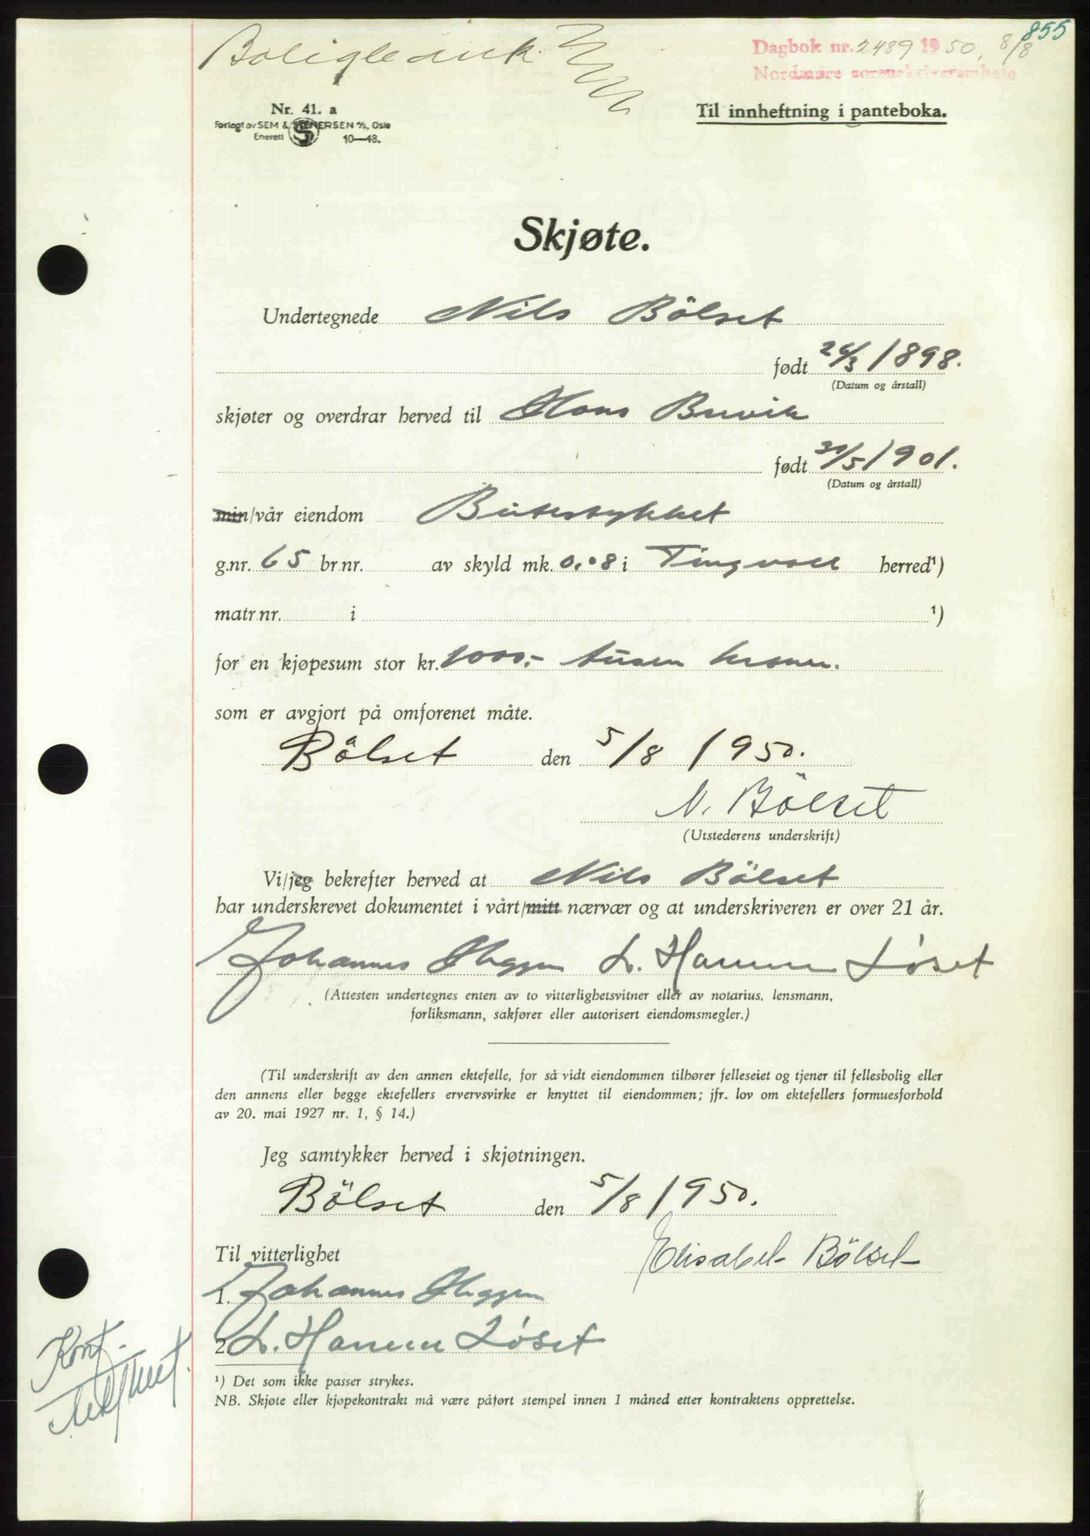 855
Dagbok nr. 2489 1950, 8/8
Nordmøre sorenskriverembete
Nr. 41. a
Forlagt av SEM & STENERSEN A/S, Oslo
Enerett 10—48.
Til innheftning i panteboka.
Skjøte.
Undertegnede Nils Bölset
født 26/3 1898.
(Datum og årstall)
skjøter og overdrar herved til Hans Buvik
født 30/5 1901.
(Datum og årstall)
min/vår eiendom
g.nr. 65 br.nr. av skyld mk. 0.08 i Tingvoll herred¹)
matr.nr. i ¹)
for en kjøpesum stor kr. 1000,- tusen kroner.
som er avgjort på omforenet måte.
Bölset den 5/8 1950.
N. Bölset
(Utstederens underskrift)
Vi/jeg bekrefter herved at Nils Bölset
har underskrevet dokumentet i vårt/mitt nærvær og at underskriveren er over 21 år.
Johannes L. Løset
(Attesten undertegnes enten av to vitterlighetsvitner eller av notarius, lensmann,
forliksmann, sakfører eller autorisert eiendomsmegler.)
(Til underskrift av den annen ektefelle, for så vidt eiendommen tilhører felleseiet og tjener til fellesbolig eller
den annens eller begge ektefellers ervervsvirke er knyttet til eiendommen; jfr. lov om ektefellers formuesforhold
av 20. mai 1927 nr. 1, § 14.)
Jeg samtykker herved i skjøtningen.
Bölset den 5/8 1950.
Til vitterlighet
Elisabet Bölset
1. Johannes
2. L. Løset
Konf.
¹) Det som ikke passer strykes.
NB. Skjøte eller kjøpekontrakt må være påført stempel innen 1 måned etter kontraktens opprettelse.